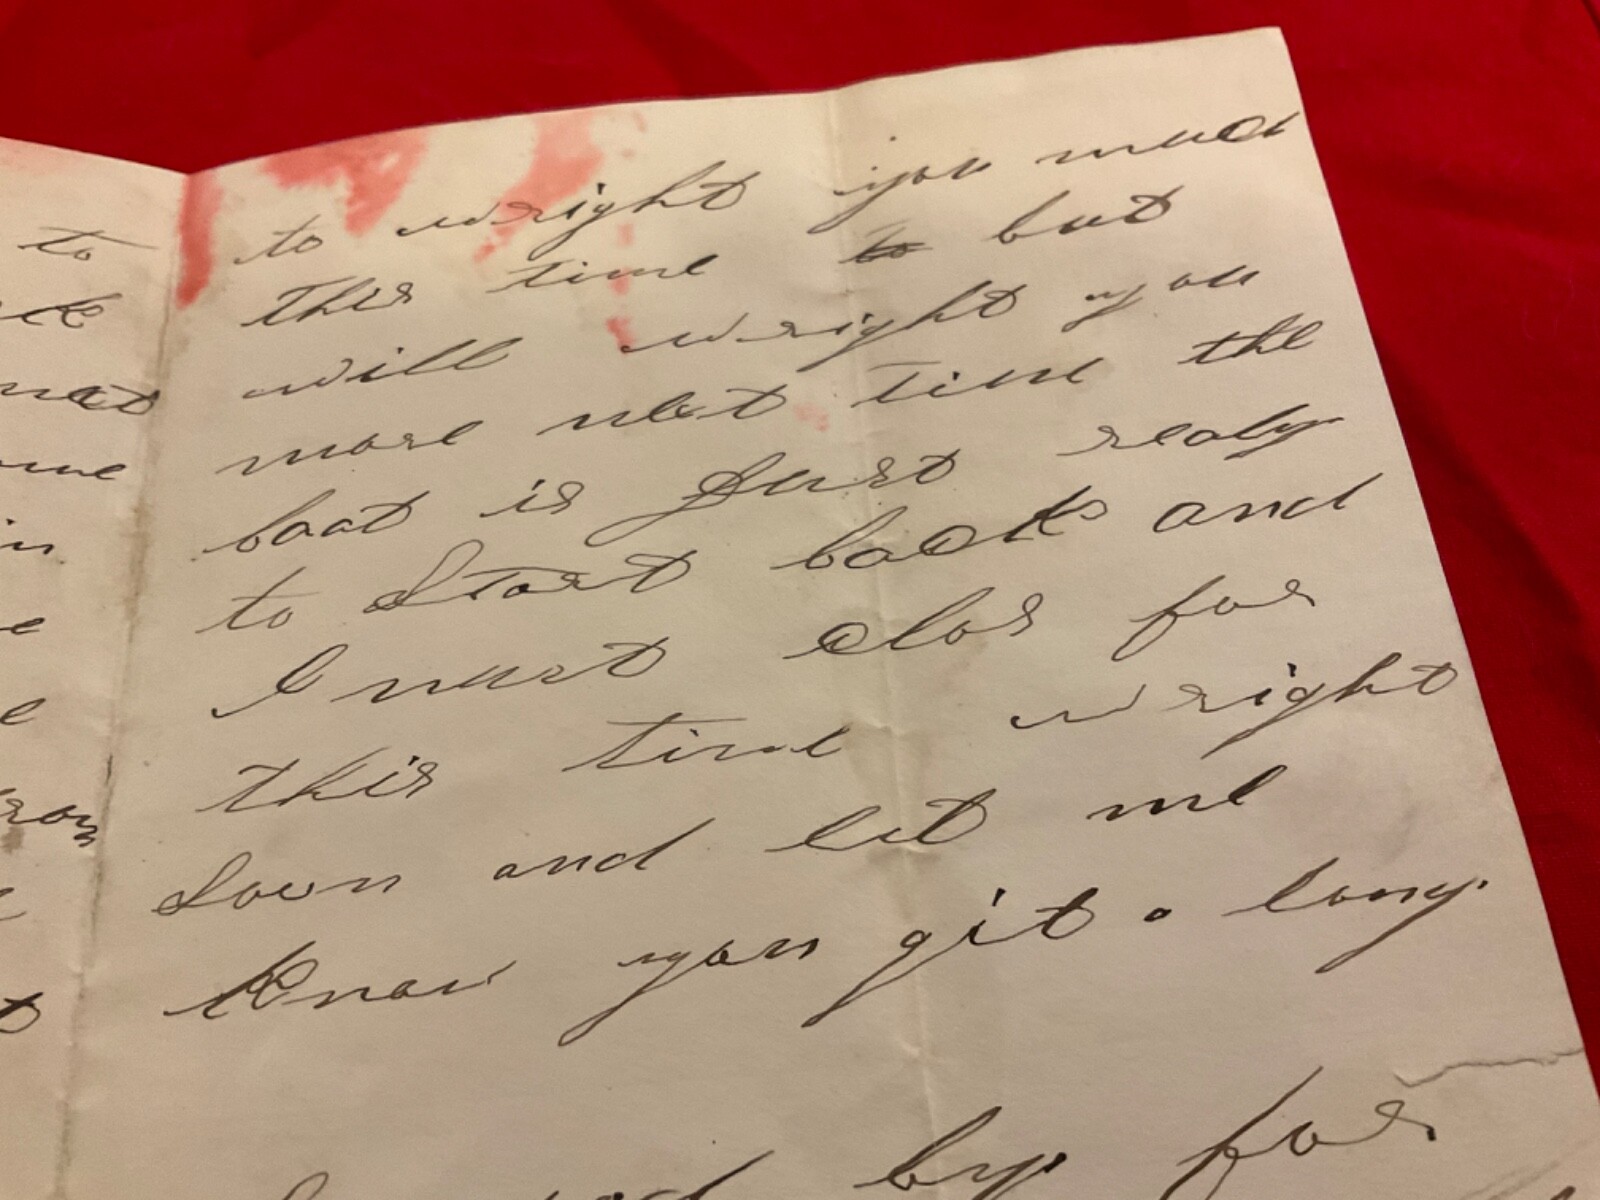 to
to wright you much
this time to but
will wright you
more next time the
boat is Just realy
to Start back and
I must clos for
this time wright
Soon and let me
Know you git a long
by for